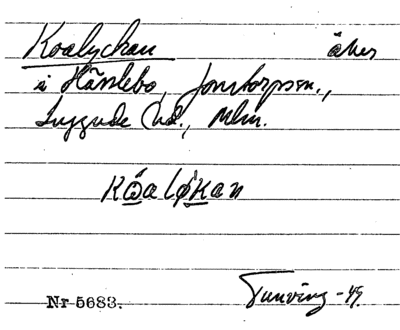 Koalyckan åker
i Hässlebo, Jonstorpssn.,
Luggude hd., Mlm.
Kōaló̩kan
Nr 5683. Tunving -49.